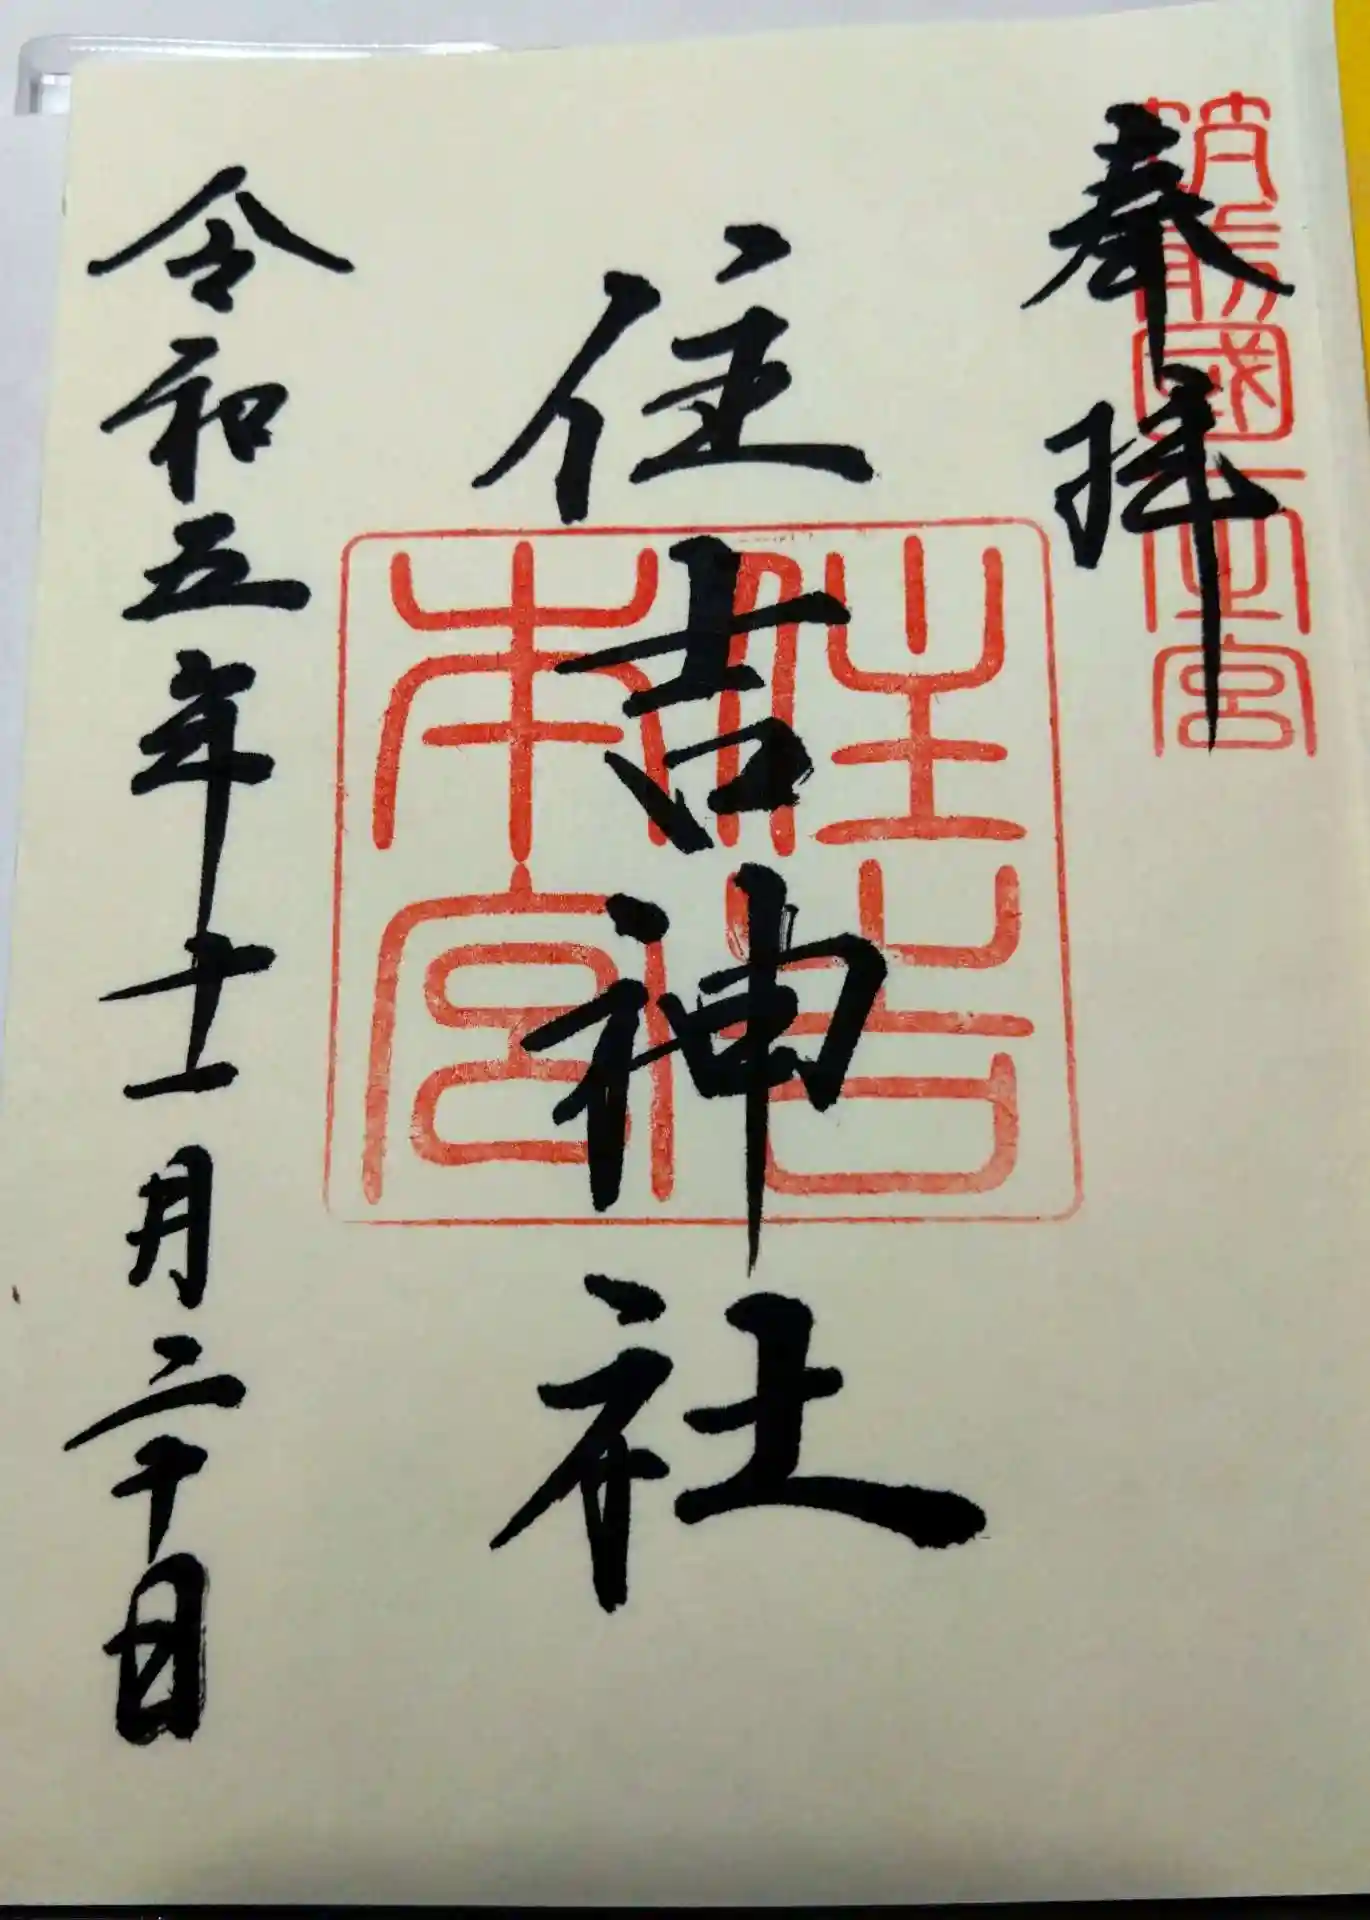 奉拝
筑前國一之宮
住吉神社
住吉本宮
令和五年十一月二十日